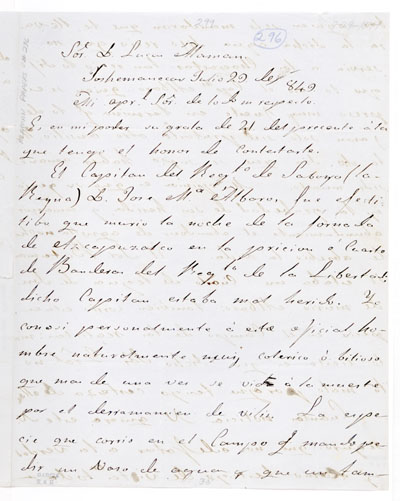 299
296
Sór. D. Lucas Alaman.
Julio 29 de 1849
Mi apr.l Sór. de todo mi respeto.
Es en mi poder su grata de 21 del presente á la
que tengo el honor de contestarle.
El Capitan del Regto. de Saboya (la
Reyna) D. Jose Ma. Albaro, fue efecti
tibo que murio la noche de la jornada
de Azcapuzalco en la pricion o Cuarto
de Banderas del Regto. de la Libertad
dicho Capitan estaba mal herido. Yo
conosi personalmente á este oficial hom
bre naturalmente muy colerico ó bilioso
que mas de una ves se vio á la muerte
por el derramamien de vilis. La espe
cie que corrio en el Campo q. mando pe
dir un Vaso de agua y que un tam-